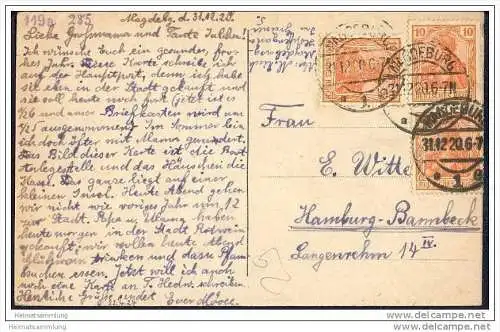 119a 285
Magdebg, d. 31.12.20.
Liebe Großmama und Tante Julchen!
Ich wünsche Euch ein gesundes, fro-
hes Jahr. Diese Karte schreibe ich
auf der Hauptpost, denn ich habe
sie eben in der Stadt gekauft und
sie soll heute noch fort. Jetzt ist es
1/2 6 und unser Briefkasten wird um
1/4 5 ausgenommen. Im Sommer bin
ich doch öfter mit Mama gerudert.
Das Bild dieser Karte ist die Boots
Anlegestelle und das Häuschen die
Insel. Das ganze liegt auf einer
kleinen Insel. Heute Abend gehen
wir nicht wie voriges Jahr um 12
zur Stadt. Papa u. Mama haben
heute morgen in der Stadt Rotwein
gekauft, wir wollen heute Abend
Glühwein trinken und dazu Pfann-
kuchen essen. Jetzt will ich auch
noch eine Karte an T. Hedw. schreiben.
Herzliche Grüße sendet
Frau
E. Witte
Hamburg-Barmbeck
Langenrehm 14 IV.
MAGDEBURG
31.12.20.6-7N
* 1
10
MAGDEBURG
31.12.20.6-7N
MAGDEBURG
31.12.20.6-7
* 1
Heimatsammlung
www.heimatsammlung.de